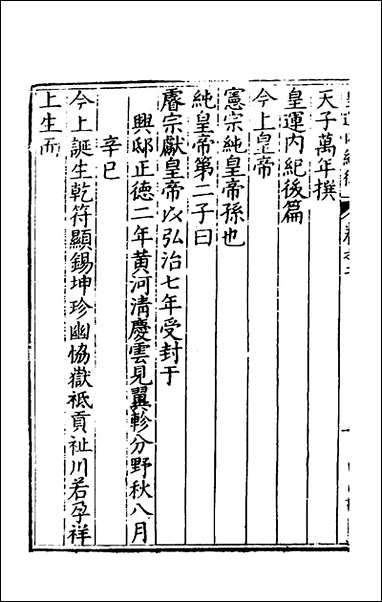 天子萬年撰
皇運内紀後篇
今上皇帝
憲宗純皇帝孫也
純皇帝第二子曰
睿宗獻皇帝以弘治七年受封于
興邸正徳二年黄河清慶雲見翼軫分野秋八月
辛巳
今上誕生乾符顯錫坤珍幽恊嶽祗貢祉川若孕祥
上生而